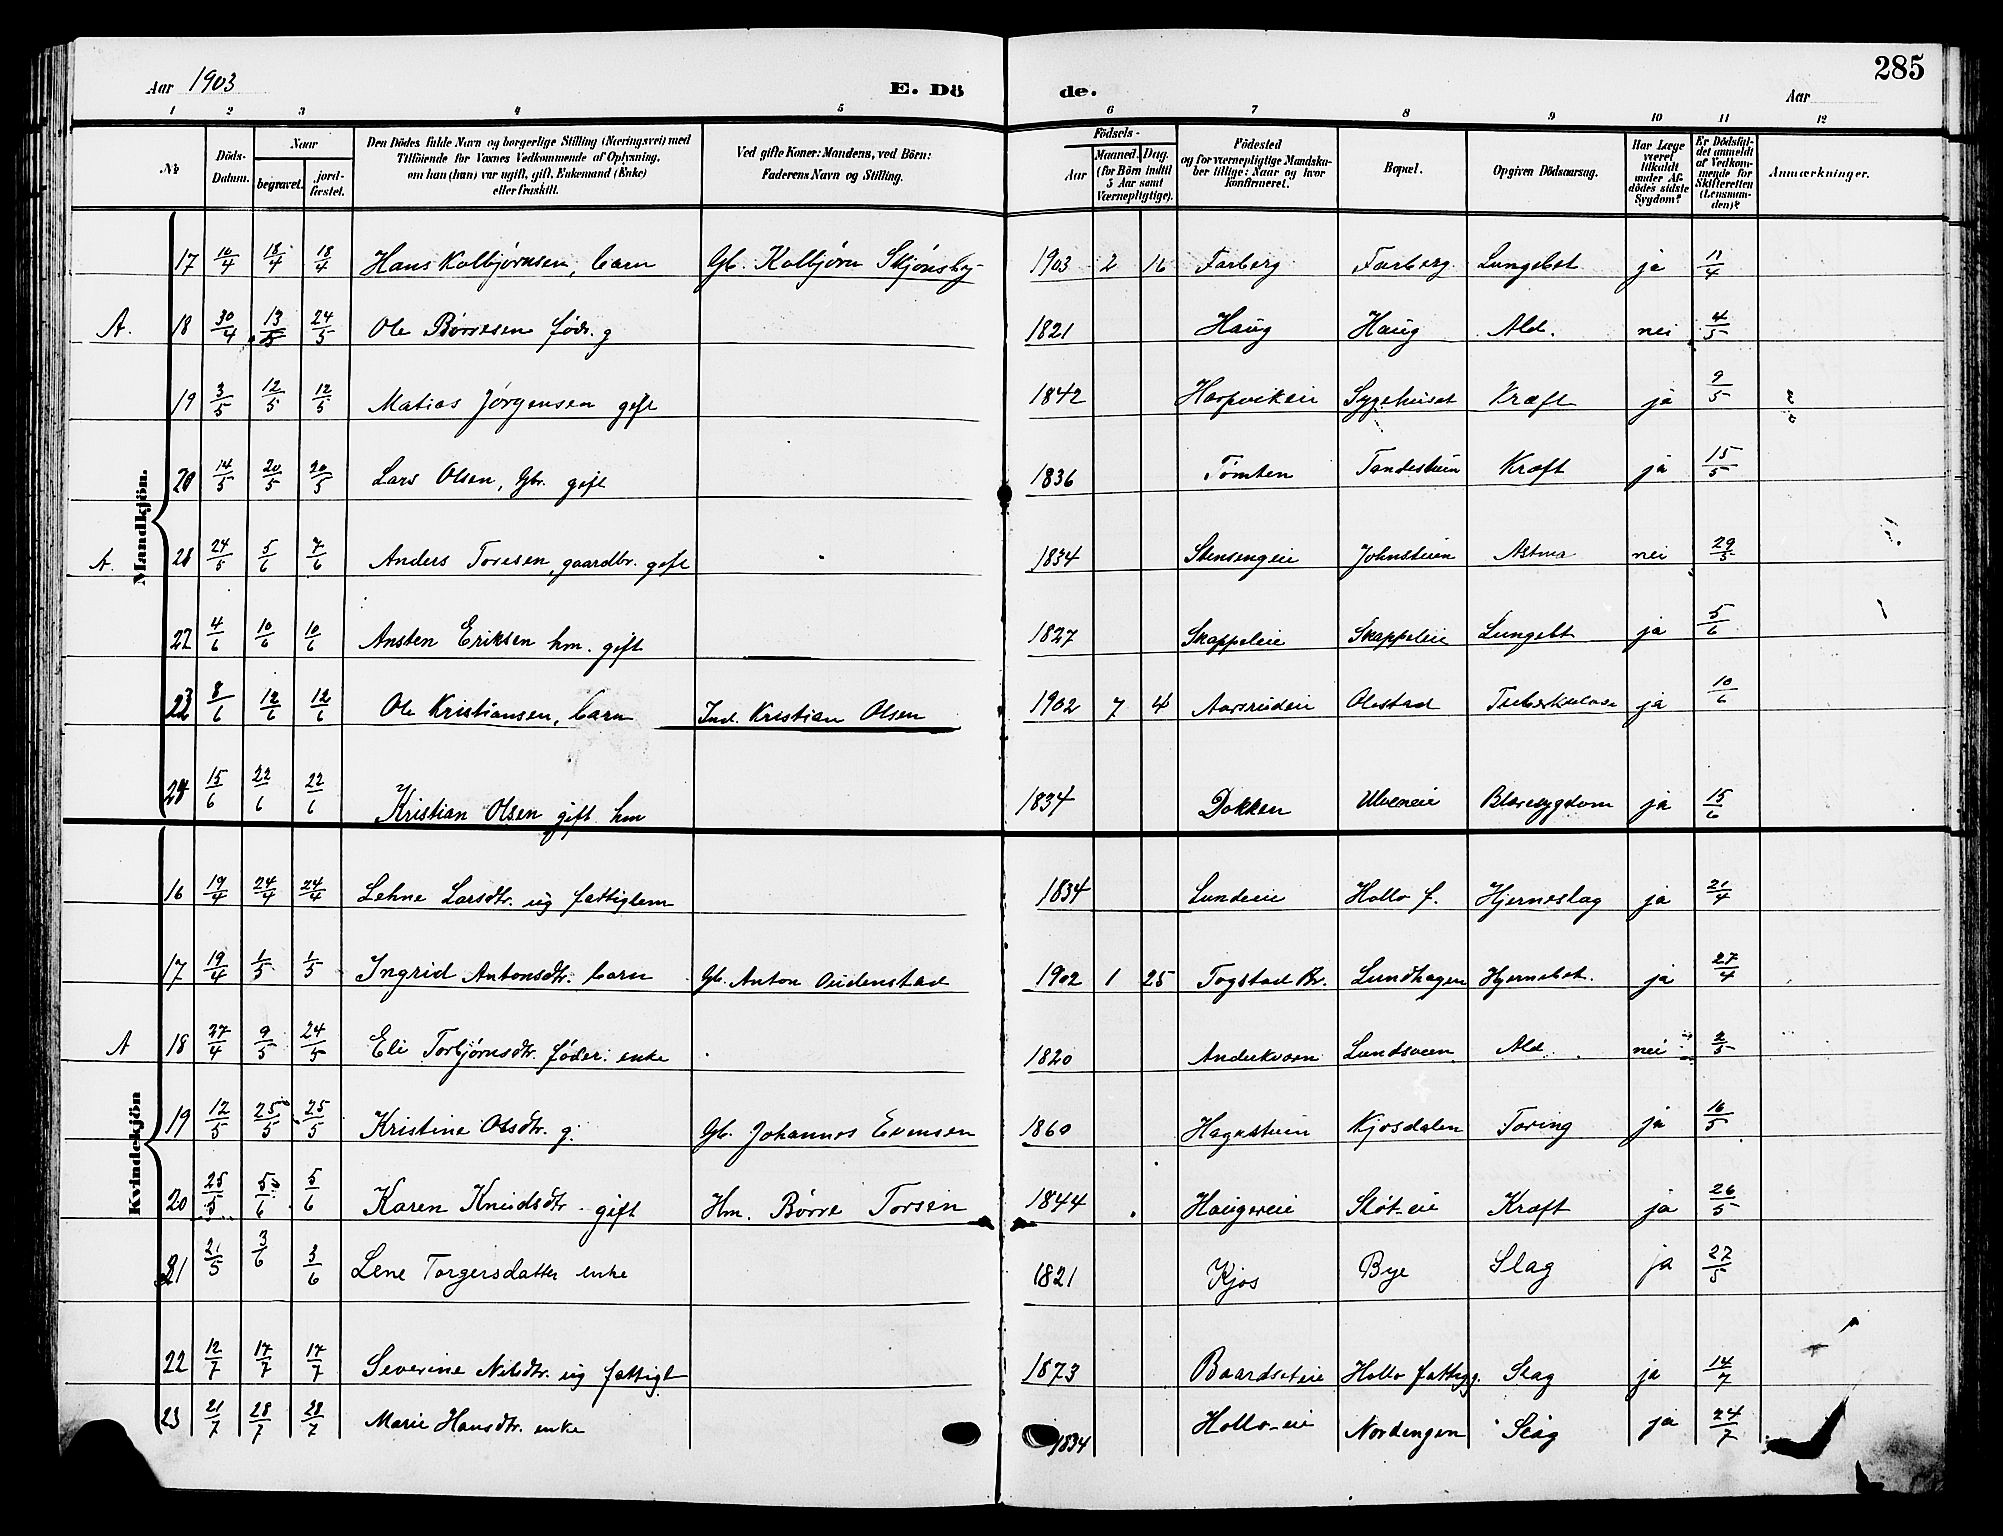 285
Aar 1903 E. Dö de. Aar
1 2 3 4 5 6 7 8 9 10 11 12
№ Döds-Datum. Naar begravet. jordfæstet. Den Dödes fulde Navn og borgerlige Stilling (Næringsvei) med Tilföiende for Voxnes Vedkommende af Oplysning, om han (hun) var ugift, gift, Enkemand (Enke) eller fraskilt. Ved gifte Koner: Mandens, ved Börn: Faderens Navn og Stilling. Födsels- Aar Maaned. Dag. (for Börn indtil 5 Aar samt Værnepligtige). Födested og for værnepligtige Mandskaber tillige: Naar og hvor konfirmeret. Bopæl. Opgiven Dödsaarsag. Har Læge været tilkaldt under Afdödes sidste Sygdom? Er Dödsfaldet anmeldt af Vedkommende for Skifteretten (Lensmanden)? Anmærkninger.
Mandkjön.
17 10/4 18/4 18/4 Hans Kolbjørnsen, barn Gb. Kolbjørn Skjønsby 1903 2 16 Farberg Farberg Lungebet ja 11/4
A. 18 30/4 13/5 24/5 Ole Børresen føder. g 1821 Haug Haug Ald. nei 4/5
19 3/5 12/5 12/5 Matias Jörgensen gift 1842 Harpvikeie Sygehuset Kræft ja 9/5
20 14/5 20/5 20/5 Lars Olsen, Gbr. gift 1836 Tømten Tandestuen Kræft ja 15/5
A. 21 24/5 5/6 7/6 Anders Toresen, gaardbr. gift 1834 Stensengeie Johnstuen Astma nei 29/5
22 4/6 10/6 10/6 Ansten Eriksen hm. gift 1827 Skappeleie Skappeleie Lungebt ja 5/6
23 8/6 12/6 12/6 Ole Kristiansen, barn Ind. Kristian Olsen 1902 7 4 Aarsrudeie Olestad Tuberkulose ja 10/6
24 15/6 22/6 22/6 Kristian Olsen gift hm 1834 Dokken Ulveneie Blæresygdom ja 15/6
Kvindekjön
16 19/4 24/4 24/4 Lehne Larsdtr. ug fattiglem 1834 Lundeie Hollo f. Hjerneslag ja 21/4
17 19/4 1/5 1/5 Ingrid Antonsdtr. barn Gb. Anton Oudenstad 1902 1 25 Togstad Br. Lundhagen Hjernebet. ja 27/4
A 18 27/4 9/5 24/5 Eli Torbjørnsdtr. føder. enke 1820 Anderkvern Lundsveen Ald. nei 2/5
19 12/5 25/5 25/5 Kristine Olsdtr. g. Gb. Johannes Evensen 1860 Hagestuen Kjosdalen Toring ja 16/5
20 25/5 5/6 5/6 Karen Knudsdtr. gift Hm. Børre Torsen 1844 Haugereie Sløt-eie Kræft ja 26/5
21 21/5 3/6 3/6 Lene Torgersdatter enke 1821 Kjos Bye Slag ja 27/5
22 12/7 17/7 17/7 Severine Nilsdtr. ug fattigl 1873 Baardseteie Hollo fattigg. Slag ja 14/7
23 21/7 28/7 28/7 Marie Hansdtr. enke 1834 Hollo-eie Nordengen Slag ja 24/7